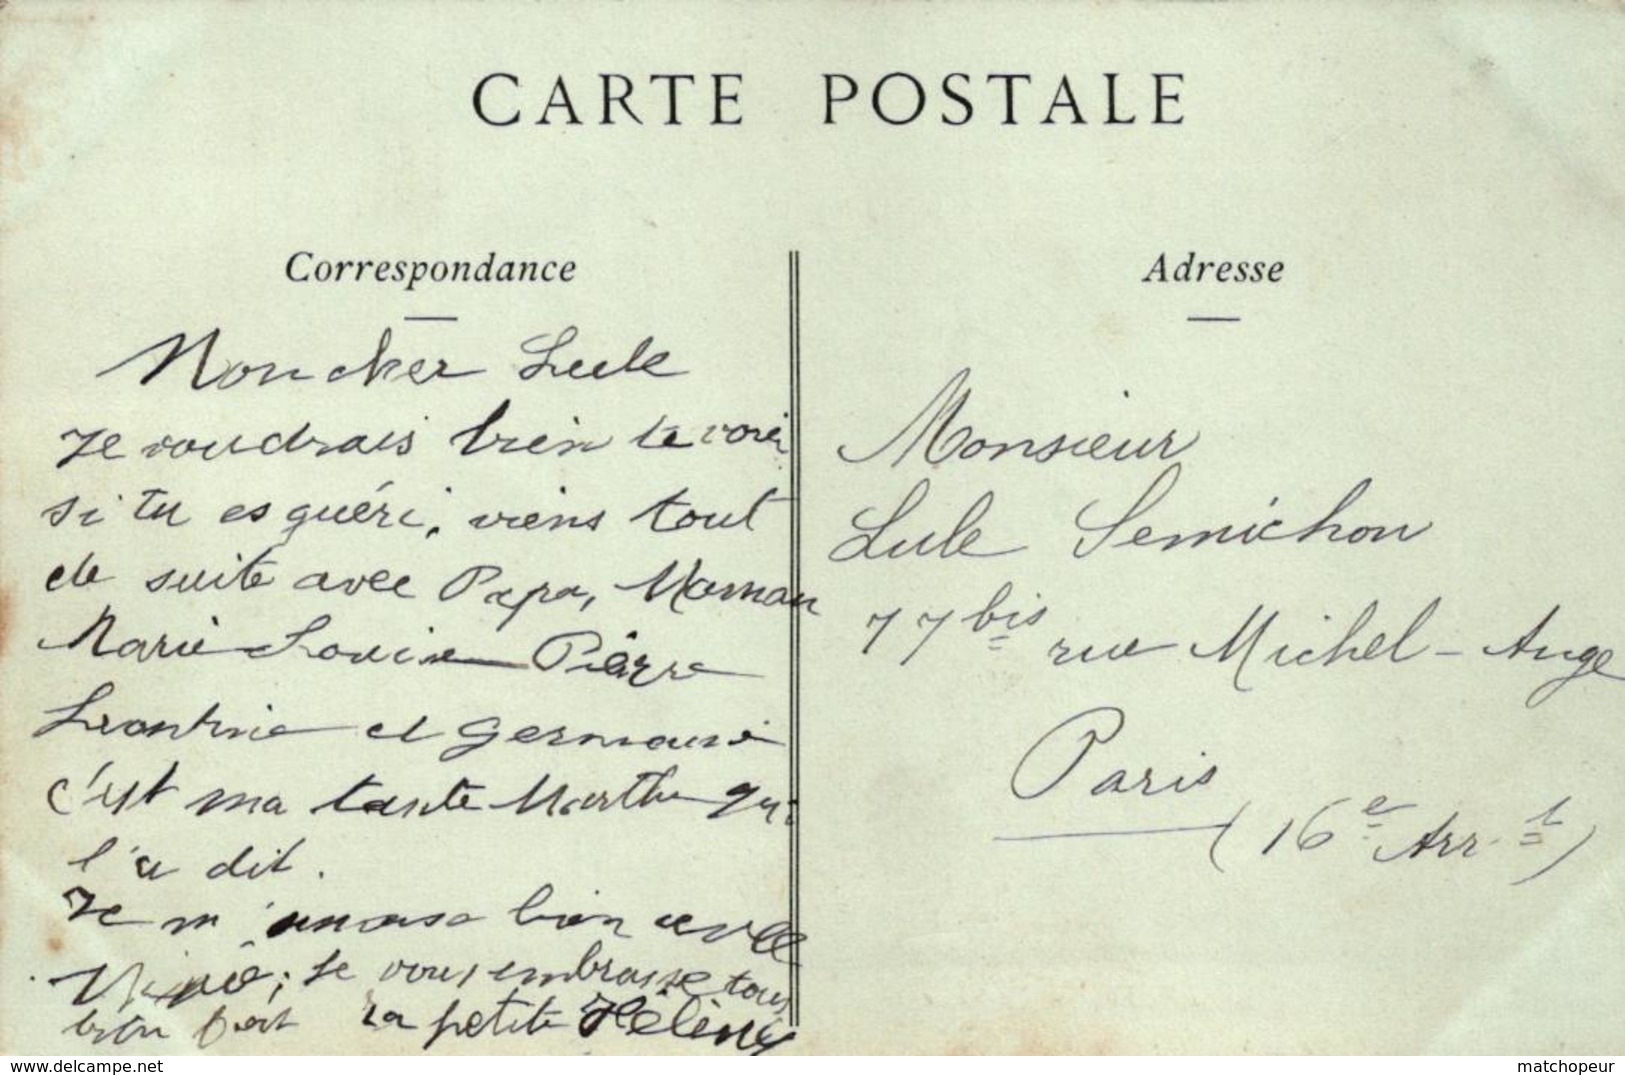 CARTE POSTALE
Correspondance
Mon cher Lule
Je voudrais bien te voir
si tu es guéri, viens tout
de suite avec Papa, Maman
Marie Louise Pierre
Leontine et Germaine
c'est ma tante Marthe qui
l'a dit.
Je m'amuse bien avec
; Je vous embrasse tous
bien fort ta petite Hélène
Adresse
Monsieur
Lule Semichon
77 bis rue Michel-Ange
Paris
(16e Arr.t)
www.delcampe.net
matchopeur